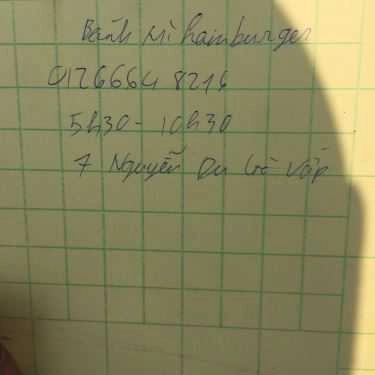 Bánh mì hamburger
01266648216
5h30 - 10h30
7 Nguyễn Du Gò Vấp